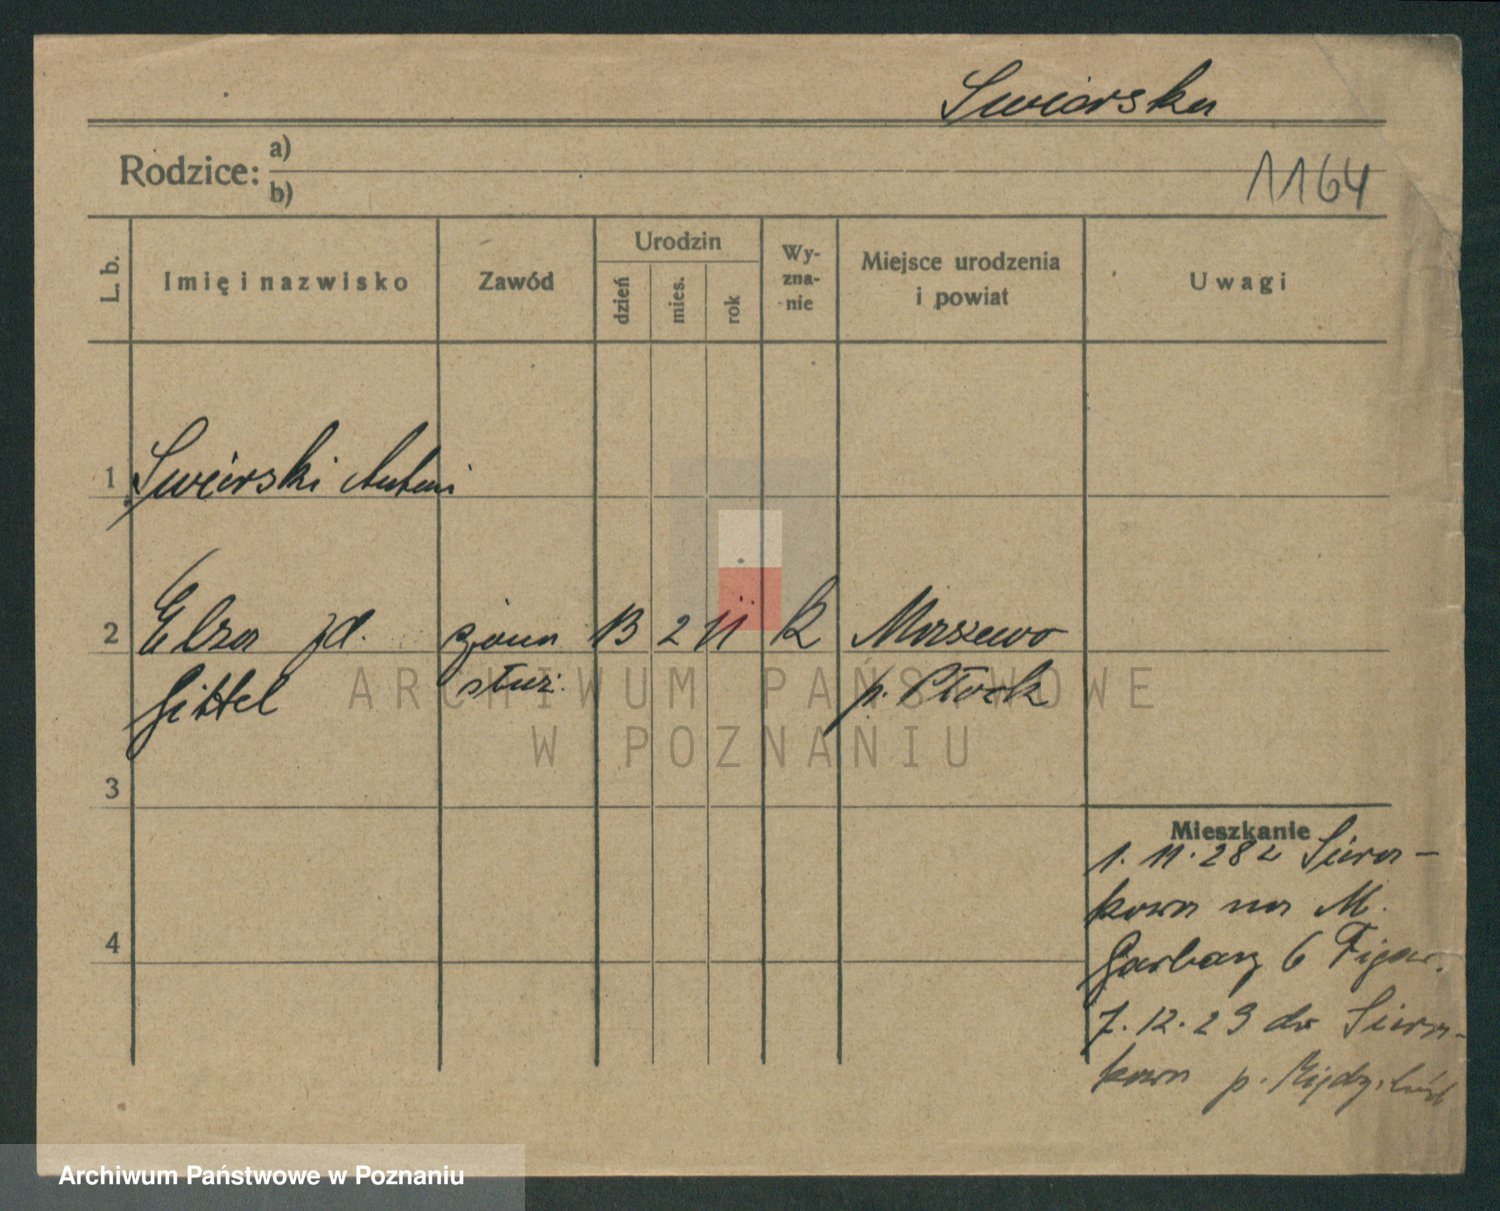 Swiorska
Rodzice: a)
b)
1164
L. b.
Imię i nazwisko
Zawód
Urodzin
dzień
mies.
rok
Wy-
zna-
nie
Miejsce urodzenia
i powiat
Uwagi
1 Swiorski Antoni
2 Elza zd. żona 13 2 11 k Morszewo
Gittel służ. p. Płock
3
Mieszkanie
1. 11. 28 z Siera-
kowa na M.
4
Garbary 6
7. 12. 29 do Siera-
kowa p.
ARCHIWUM PAŃSTWOWE
W POZNANIU
Archiwum Państwowe w Poznaniu